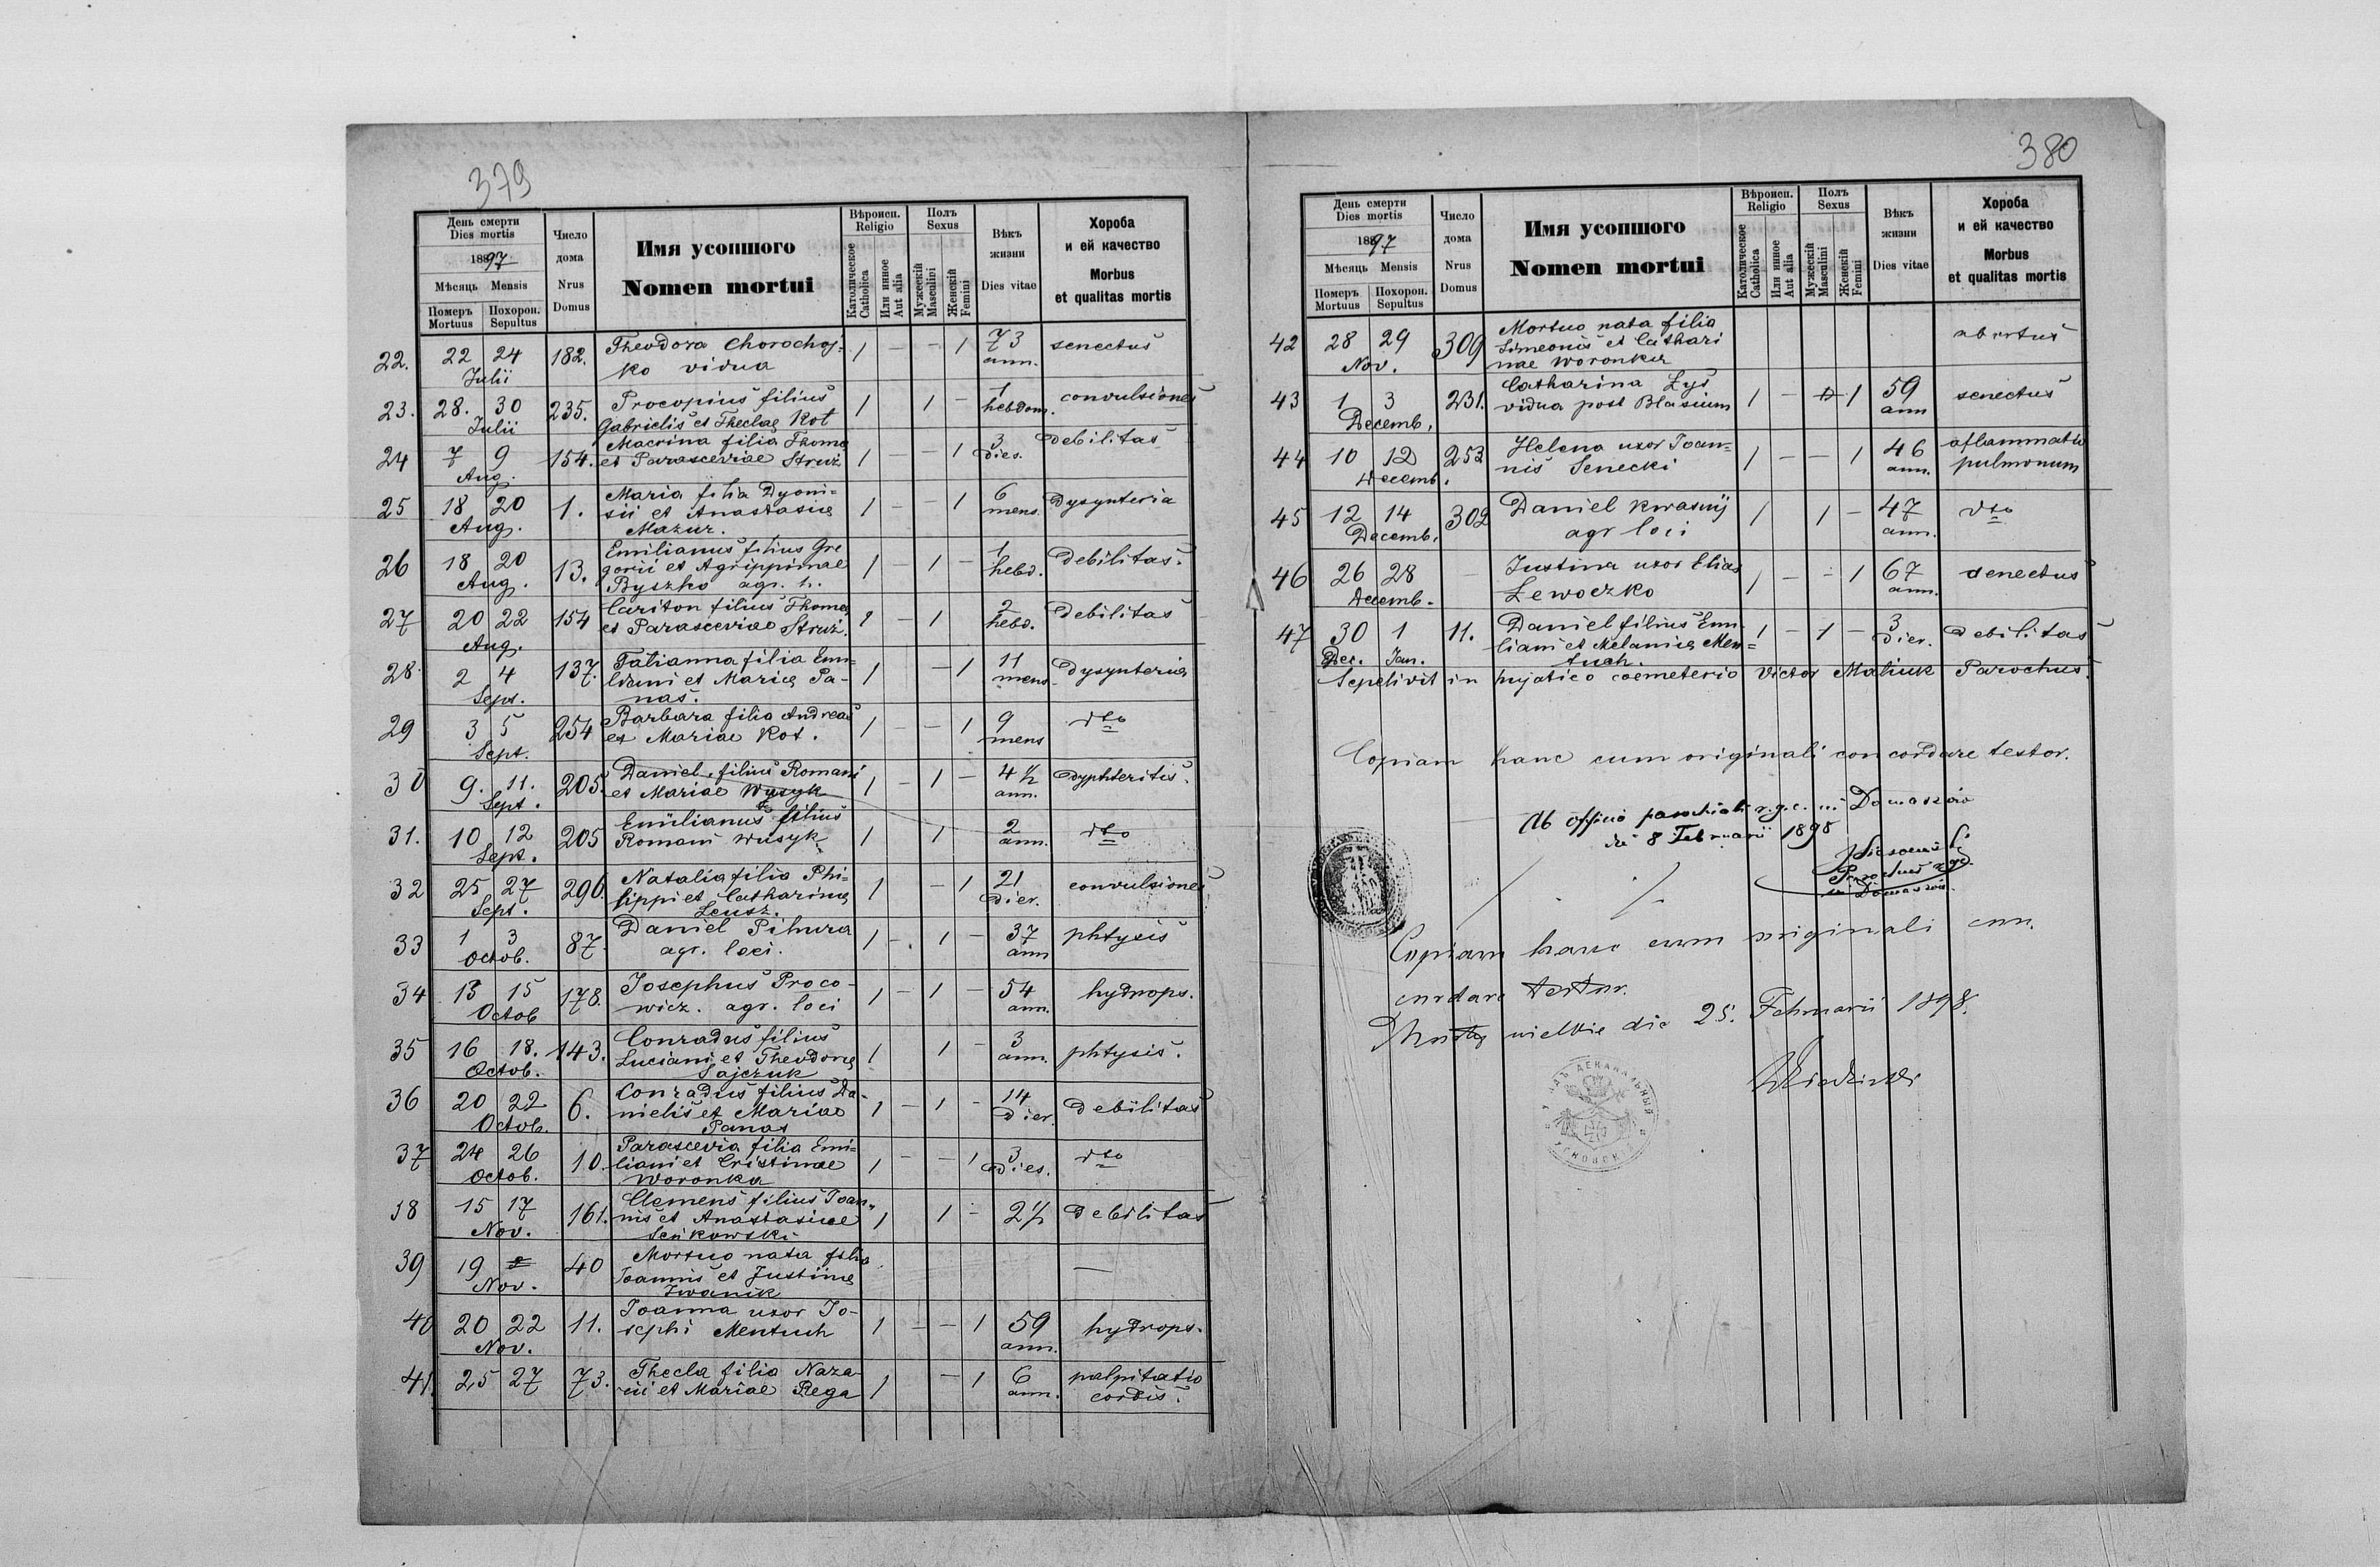 379
День смерти
Dies mortis
1897
Мѣсяць Mensis
Померъ Похорон.
Mortuus Sepultus
Число
дома
Nrus
Domus
Имя усопшого
Nomen mortui
Вѣроисп.
Religio
Католическое
Catholica
Или инное
Aut alia
Полъ
Sexus
Мужескій
Masculini
Женскій
Femini
Вѣкъ
жизни
Dies vitae
Хороба
и ей качество
Morbus
et qualitas mortis
22. 22 24 182. Theodora Chorochoj- 1 - - 1 73 senectus
Julii ko vidua ann.
23. 28. 30 235. Procopius filius 1 1 - 1 convulsiones
Julii Gabrielis et Theclae Kot hebdom.
24 7 9 154. Macrina filia Thomae 1 - - 1 3 debilitas
Aug. et Parasceviae Struz dies.
25 18 20 1. Maria filia Dyoni= 1 - - 1 6 dysynteria
Aug. sii et Anastasiae mens.
Mazur.
26 18 20 13. Emilianus filius Gre 1 - 1 - 1 debilitas.
Aug. gorii et Agrippinae hebd.
Byszko agr. h.
27 20 22 154 Cariton filius Thomae 1 - 1 2 debilitas
Aug. et Parasceviae Struz. hebd.
28. 2 4 137. Tatianna filia Emi- 1 - 1 11 dysynteria
Sept. liani et Mariae Pa- mens.
nas.
29 3 5 254 Barbara filia Andreae 1 - - 1 9 dto
Sept. et Mariae Kot. mens
30 9. 11. 205. Daniel filius Romani 1 - 1 - 4 1/2 dyphteritis.
Sept. et Mariae Wusyk ann.
31. 10 12 205 Emilianus filius 1 1 2 dto
Sept. Romani Wusyk ann.
32 25 27 296. Natalia filia Phi= 1 - 1 21 convulsiones
Sept. lippi et Catharinae dier.
Leusz.
33 1 3 87. Daniel Pihura 1 - 1 - 37 phtysis
Octob. agr. loci. ann
34 13 15 178. Josephus Proco- 1 - 1 - 54 hydrops.
Octob wicz. agr. loci ann.
35 16 18. 143. Conradus filius 1 1 - 3 phtysis.
Octob. Luciani et Theodorae ann.
Sajczuk
36 20 22 6. Conradus filius Da- 1 - 1 - 14 debilitas
Octob. nielis et Mariae dier.
Panas
37 24 26 10. Parascevia filia Emi= 1 - - 1 3 dto
Octob. liani et Cristinae dies.
Woronka
38 15 17 161. Clemens filius Joan= 1 1 - 2 1/2 debilitas
Nov. nis et Anastasiae
Senkowski
39 19 40 Mortuo nata filia —
Nov. Joannis et Justinae
Iwanik
40 20 22 11. Joanna uxor Jo- 1 - - 1 59 hydrops.
Nov. sephi Mentuch ann.
41. 25 27 73. Thecla filia Naza- 1 - 1 6 palpitatio
rii et Mariae Rega ann. cordis.
380
День смерти
Dies mortis
1897
Мѣсяць Mensis
Померъ Похорон.
Mortuus Sepultus
Число
дома
Nrus
Domus
Имя усопшого
Nomen mortui
Вѣроисп.
Religio
Католическое
Catholica
Или инное
Aut alia
Полъ
Sexus
Мужескій
Masculini
Женскій
Femini
Вѣкъ
жизни
Dies vitae
Хороба
и ей качество
Morbus
et qualitas mortis
42 28 29 309 Mortuo nata filia abortus
Nov. Simeonis et Cathari
nae Woronka
43 1 3 231. Catharina Lys 1 - 1 59 senectus
Decemb. vidua post Blasium ann
44 10 12 253 Helena uxor Joan= 1 - - 1 46 aflammatio
Decemb. nis Senecki ann. pulmonum
45 12 14 302 Daniel Kwasnij 1 1 - 47 dto
Decemb. agr loci ann.
46 26 28 - Justina uxor Eliae 1 - - 1 67 senectus
Decemb. Lewoczko ann.
47 30 1 11. Daniel filius Emi- 1 - 1 - 3 debilitas
Dec. Jan. liani et Melaniae Men= dier.
tuch.
Sepelivit in hujatico coemeterio Victor Maliuk Parochus.
Copiam hanc cum originali concordare testor.
Ab officio parochiali r.g.c. in Domaszów
die 8 Februarii 1898
Parochus r.g.
in Domaszów.
Copiam hanc cum originali con-
cordare testor.
wielkie die 25. Februarii 1898.